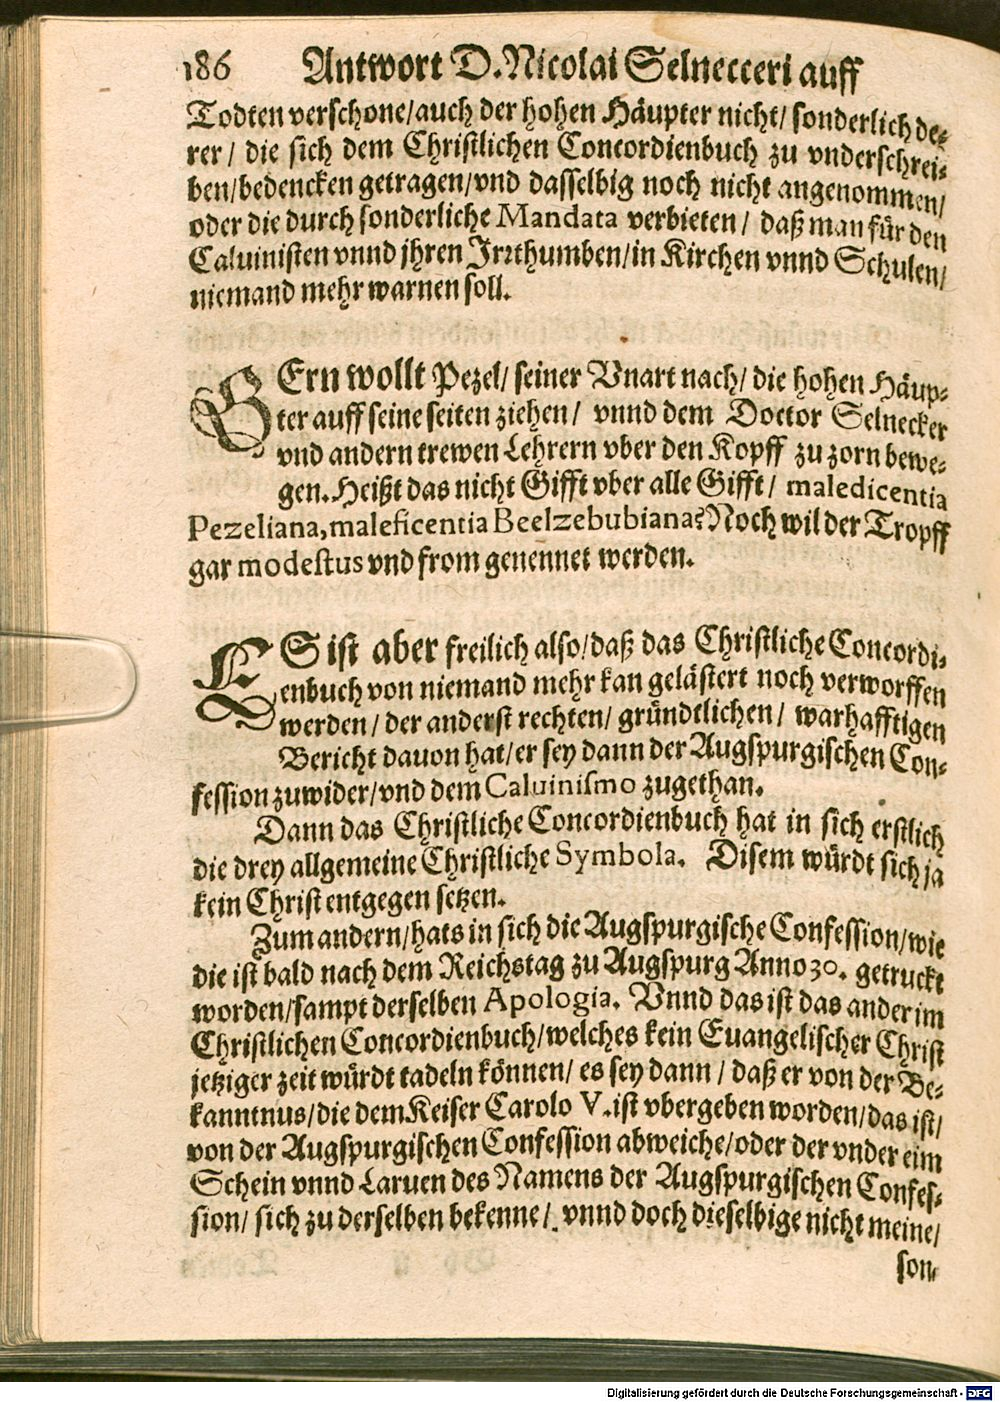 186 Antwort D. Nicolai Selnecceri auff
Todten verschone/ auch der hohen Häupter nicht/ sonderlich de-
rer/ die sich dem Christlichen Concordienbuch zu vnderschrei-
ben/ bedencken getragen/ vnd dasselbig noch nicht angenommen/
oder die durch sonderliche Mandata verbieten/ daß man für den
Caluinisten vnnd jhren Irrthumben/ in Kirchen vnnd Schulen/
niemand mehr warnen soll.
GErn wollt Pezel/ seiner Vnart nach/ die hohen Häup-
ter auff seine seiten ziehen/ vnnd dem Doctor Selnecker
vnd andern trewen Lehrern vber den Kopff zu zorn bewe-
gen. Heißt das nicht Gifft vber alle Gifft/ maledicentia
Pezeliana, maleficentia Beelzebubiana? Noch wil der Tropff
gar modestus vnd from genennet werden.
ES ist aber freilich also/ daß das Christliche Concordi-
enbuch von niemand mehr kan gelästert noch verworffen
werden/ der anderst rechten/ gründtlichen/ warhafftigen
Bericht dauon hat/ er sey dann der Augspurgischen Con-
fession zuwider/ vnd dem Caluinismo zugethan.
Dann das Christliche Concordienbuch hat in sich erstlich
die drey allgemeine Christliche Symbola. Disem würdt sich ja
kein Christ entgegen setzen.
Zum andern/ hats in sich die Augspurgische Confession/ wie
die ist bald nach dem Reichstag zu Augspurg Anno 30. getruckt
worden/ sampt derselben Apologia. Vnnd das ist das ander im
Christlichen Concordienbuch/ welches kein Euangelischer Christ
jetziger zeit würdt tadeln können/ es sey dann/ daß er von der Be-
kanntnus/ die dem Keiser Carolo V. ist vbergeben worden/ das ist/
von der Augspurgischen Confession abweiche/ oder der vnder eim
Schein vnnd Laruen des Namens der Augspurgischen Confes-
sion/ sich zu derselben bekenne/. vnnd doch dieselbige nicht meine/
son-
Digitalisierung gefördert durch die Deutsche Forschungsgemeinschaft - DFG